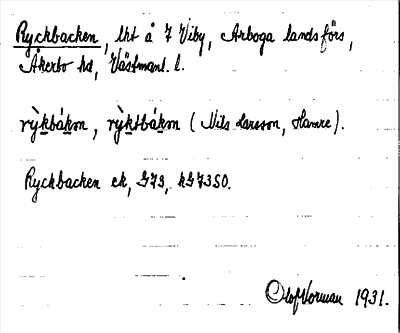 Ryckbacken, lht å 7 Viby, Arboga landsförs,
Åkerbo hd, Västmanl. l.
rỳkbákon, rỳktbákon (Nils Larsson, Hamre).
Ryckbacken ek, G73, hG73SO.
Olof Norman 1931.